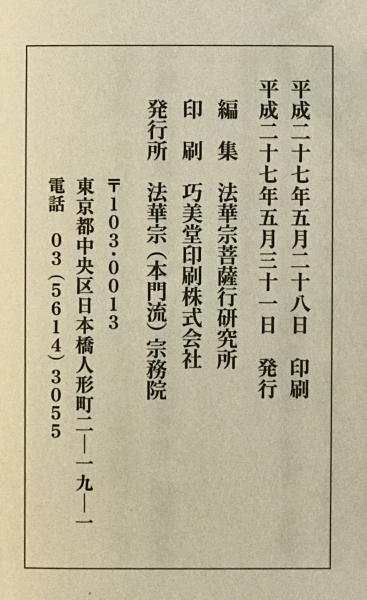 平成二十七年五月二十八日　印刷
平成二十七年五月三十一日　発行
編　集　法華宗菩薩行研究所
印　刷　巧美堂印刷株式会社
発行所　法華宗（本門流）宗務院
〒103・0013
東京都中央区日本橋人形町二―一九―一
電話　03（5614）3055